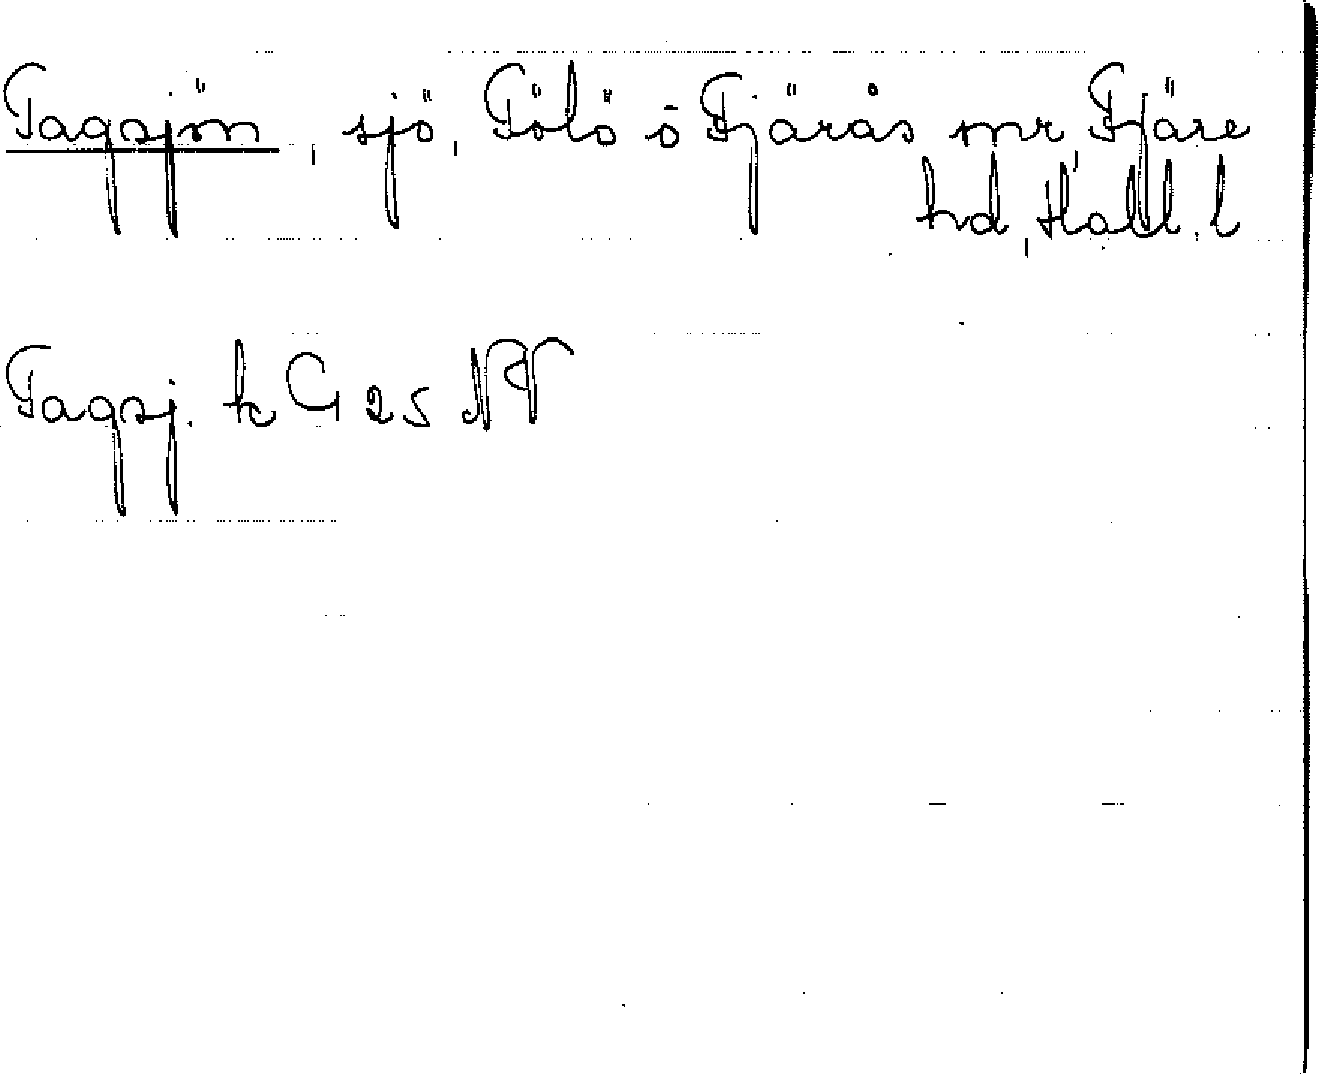 Tagsjön, sjö, Tölö o Fjärås snr, Fjäre
hd, Hall. l
Tagsj. k G 25 NV